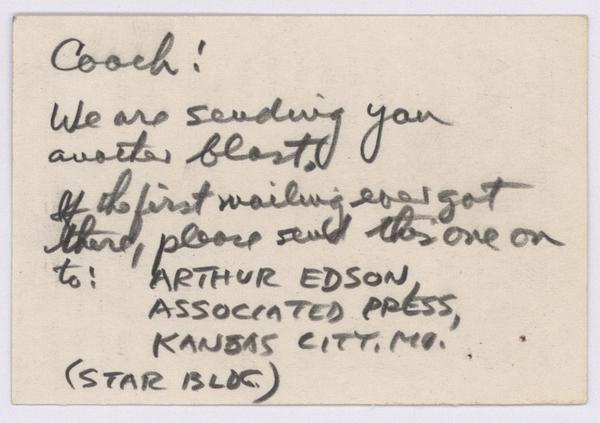 Coach!
We are sending you
another blast.
If the first mailing ever got
there, please send this one on
to: ARTHUR EDSON,
ASSOCIATED PRESS,
KANSAS CITY, MO.
(STAR BLDG.)